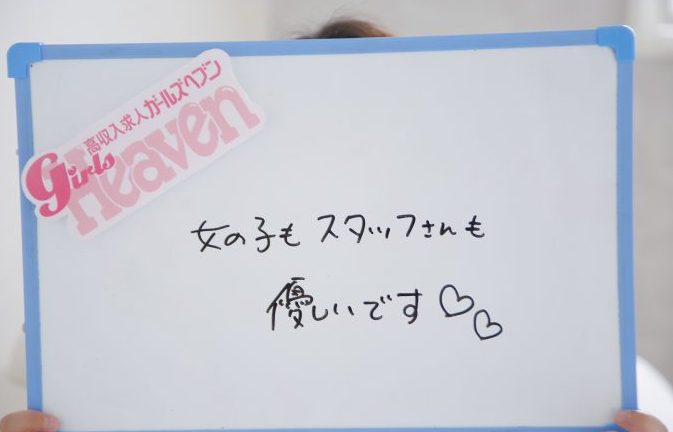 高収入求人ガールズヘブン
girls Heaven
女の子も スタッフさんも
優しいです♡♡